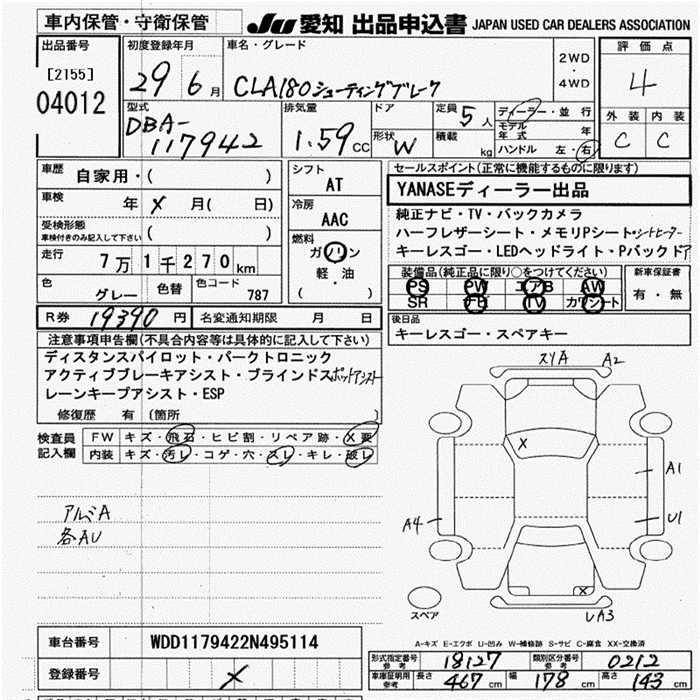 車内保管・守衛保管
JU 愛知 出品申込書 JAPAN USED CAR DEALERS ASSOCIATION
出品番号
[2155]
04012
初度登録年月
29 6月
車名・グレード
CLA180シューティングブレーク
2WD
・
4WD
評価点
4
外装 内装
C C
型式
DBA-
117942
排気量
1.59cc
ドア
形状 W
定員 5人
積載 kg
ディーラー・並行
モデル年式 年
ハンドル 左・右
車歴 自家用・( )
車検 年 X 月( 日)
受検形態
車検付きのみ記入して下さい ( )
走行 7万1千270km
色 グレー 色替 色コード 787
シフト
AT
冷房
AAC
燃料
ガソリン
軽・油
( )
セールスポイント(正常に機能するものに限ります)
YANASEディーラー出品
純正ナビ・TV・バックカメラ
ハーフレザーシート・メモリPシート・シートヒーター
キーレスゴー・LEDヘッドライト・Pバックドア
装備品(純正品に限り○をつけてください)
PS PW エアB AW
SR ナビ TV カワシート
新車保証書
有・無
R券 19390円 名変通知期限 月 日
後日品
キーレスゴー・スペアキー
注意事項申告欄(不具合内容等は具体的に記入して下さい)
ディスタンスパイロット・パークトロニック
アクティブブレーキアシスト・ブラインドスポットアシスト
レーンキープアシスト・ESP
修復歴 有 (箇所 )
検査員
記入欄
FW キズ・飛石・ヒビ割・リペア跡・X要
内装 キズ・汚レ・コゲ・穴・スレ・キレ・破レ
アルミA
各AU
スリA A2
X
A1
A4
U1
X
UA3
スペア
A-キズ E-エクボ U-凹み W-補修跡 S-サビ C-腐食 XX-交換済
車台番号 WDD1179422N495114
登録番号 X
形式指定番号 参考 18127 類別区分番号 参考 0212
車庫証明用 参考 長さ 467cm 幅 178cm 高さ 143cm